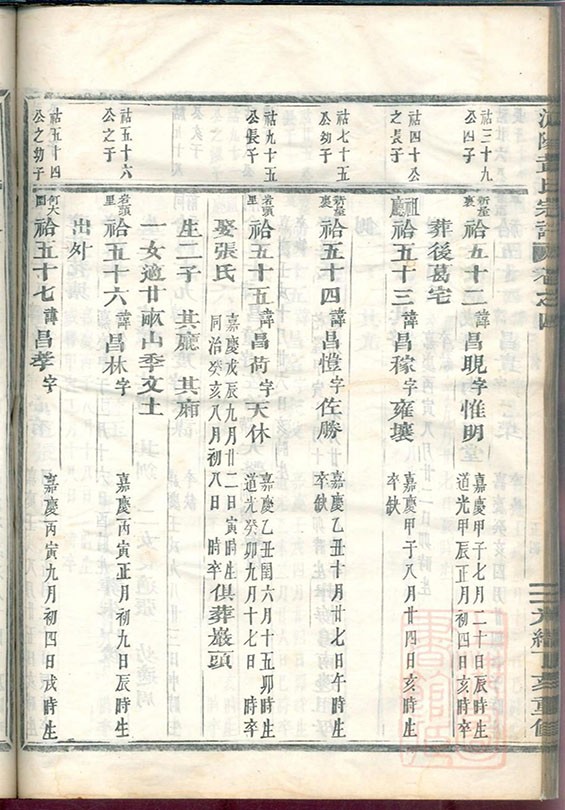 氏宗譜 卷之四
光緒丁亥重修
祜三十九
公四子
新屋
裏
袷五十二 諱昌晛字惟明
嘉慶甲子七月二十日辰時生
道光甲辰正月初四日亥時卒
葬後葛宅
祜四十公
之長子
祖
廳
袷五十三 諱昌稼字雍壤
嘉慶甲子八月廿四日亥時生
卒缺
祜七十五
公幼子
新屋
裏
袷五十四 諱昌愷字佐勝
嘉慶乙丑十月廿七日午時生
卒缺
祜九十五
公長子
岩頭
里
袷五十五 諱昌荷字天休
嘉慶乙丑閏六月十五卯時生
道光癸卯九月十七日 時卒
娶張氏
嘉慶戊辰九月廿二日寅時生
同治癸亥八月初八日 時卒
俱葬巖頭
生二子 其廳 其廂
一女適廿畝山季文土
祜五十六
公之子
岩頭
里
袷五十六 諱昌林字
嘉慶丙寅正月初九日辰時生
出外
祜五十四
公之幼子
何大
園
袷五十七 諱昌孝字
嘉慶丙寅九月初四日戌時生